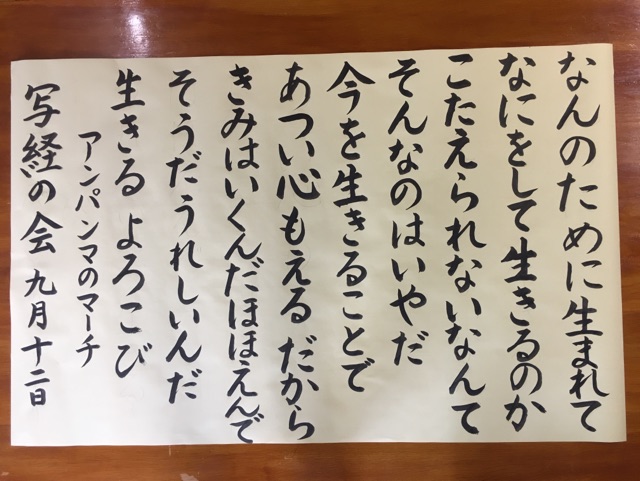 なんのために生まれて
なにをして生きるのか
こたえられないなんて
そんなのはいやだ
今を生きることで
あつい心もえる だから
きみはいくんだほほえんで
そうだうれしいんだ
生きる よろこび
アンパンマのマーチ
写経の会 九月十二日